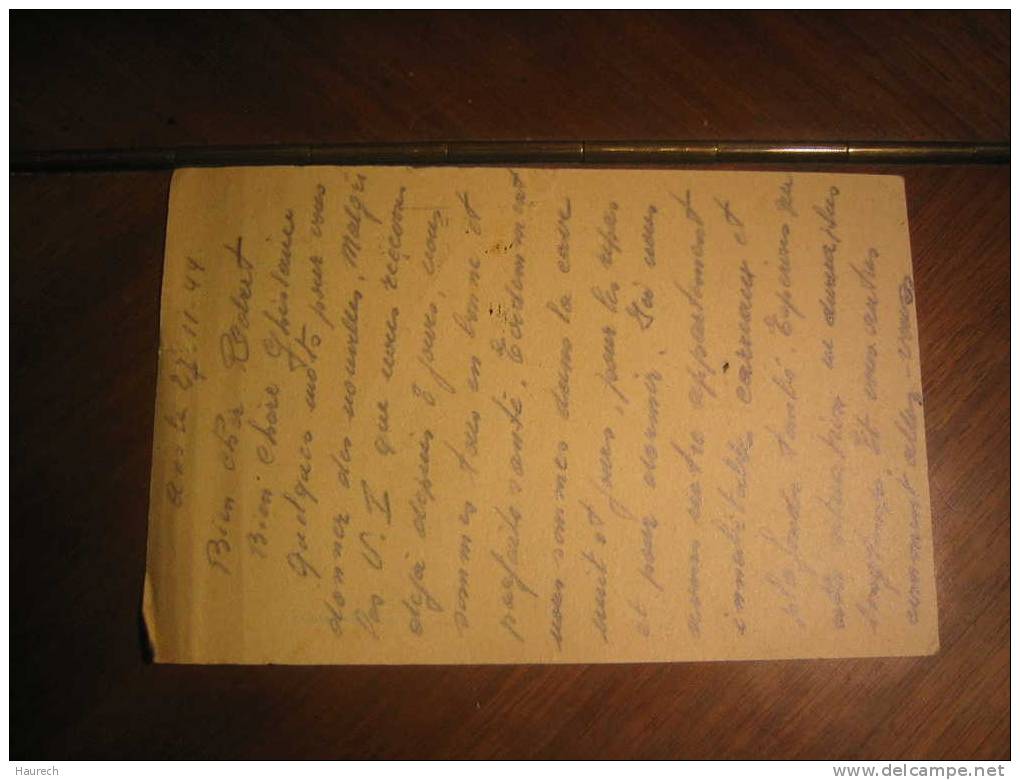 le 27-11-44
Bien cher Robert
Bien chère Ghislaine
Quelques mots pour vous
donner des nouvelles, malgré
les V. I que nous recevons
déjà depuis 8 jours, nous
sommes tous en bonne et
parfaite santé. Evidemment
nous sommes dans la cave
nuit et jour, pour les repas
et pour dormir. Ici nous
avons notre appartement
inhabitable, carreaux et
plafonds tombés. Espérons que
cette situation ne durera plus
longtemps. Et vous autres
comment allez-vous
Haurech
delcampe.net